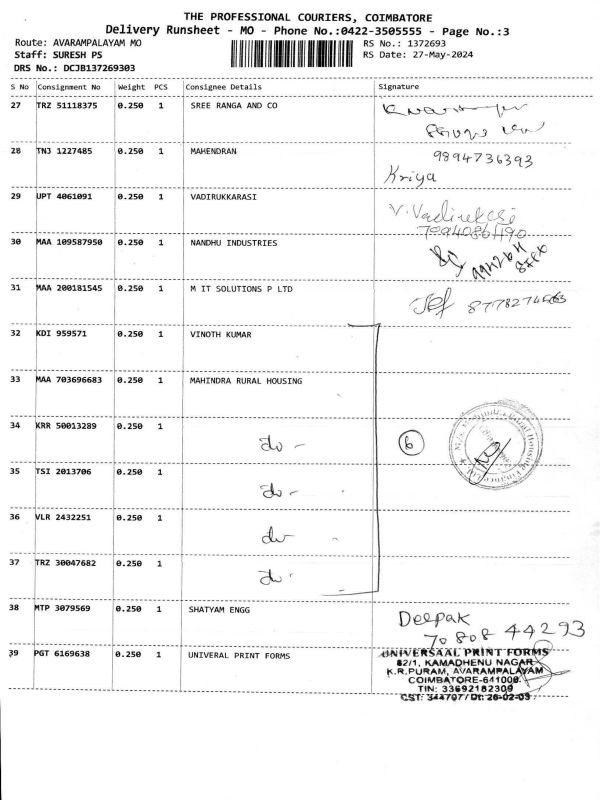 THE PROFESSIONAL COURIERS, COIMBATORE
Delivery Runsheet - MO - Phone No.:0422-3505555 - Page No.:3
Route: AVARAMPALAYAM MO RS No.: 1372693
Staff: SURESH PS RS Date: 27-May-2024
DRS No.: DCJB137269303
S No Consignment No Weight PCS Consignee Details Signature
27 TRZ 51118375 0.250 1 SREE RANGA AND CO
28 TNJ 1227485 0.250 1 MAHENDRAN 9894736393
Kriya
29 UPT 4061091 0.250 1 VADIRUKKARASI V. Vadirukkarasi
30 MAA 109587950 0.250 1 NANDHU INDUSTRIES
31 MAA 200181545 0.250 1 M IT SOLUTIONS P LTD
32 KDI 959571 0.250 1 VINOTH KUMAR
33 MAA 703696683 0.250 1 MAHINDRA RURAL HOUSING
34 KRR 50013289 0.250 1 do - 6
35 TSI 2013706 0.250 1 do -
36 VLR 2432251 0.250 1 do -
37 TRZ 30047682 0.250 1 do -
38 MTP 3079569 0.250 1 SHATYAM ENGG Deepak
70808 44293
39 PGT 6169638 0.250 1 UNIVERAL PRINT FORMS UNIVERSAAL PRINT FORMS
82/1, KAMADHENU NAGAR
K.R.PURAM, AVARAMPALAYAM
COIMBATORE-641006.
TIN: 33692182309
CST: 344707/ Dt: 26-02-03